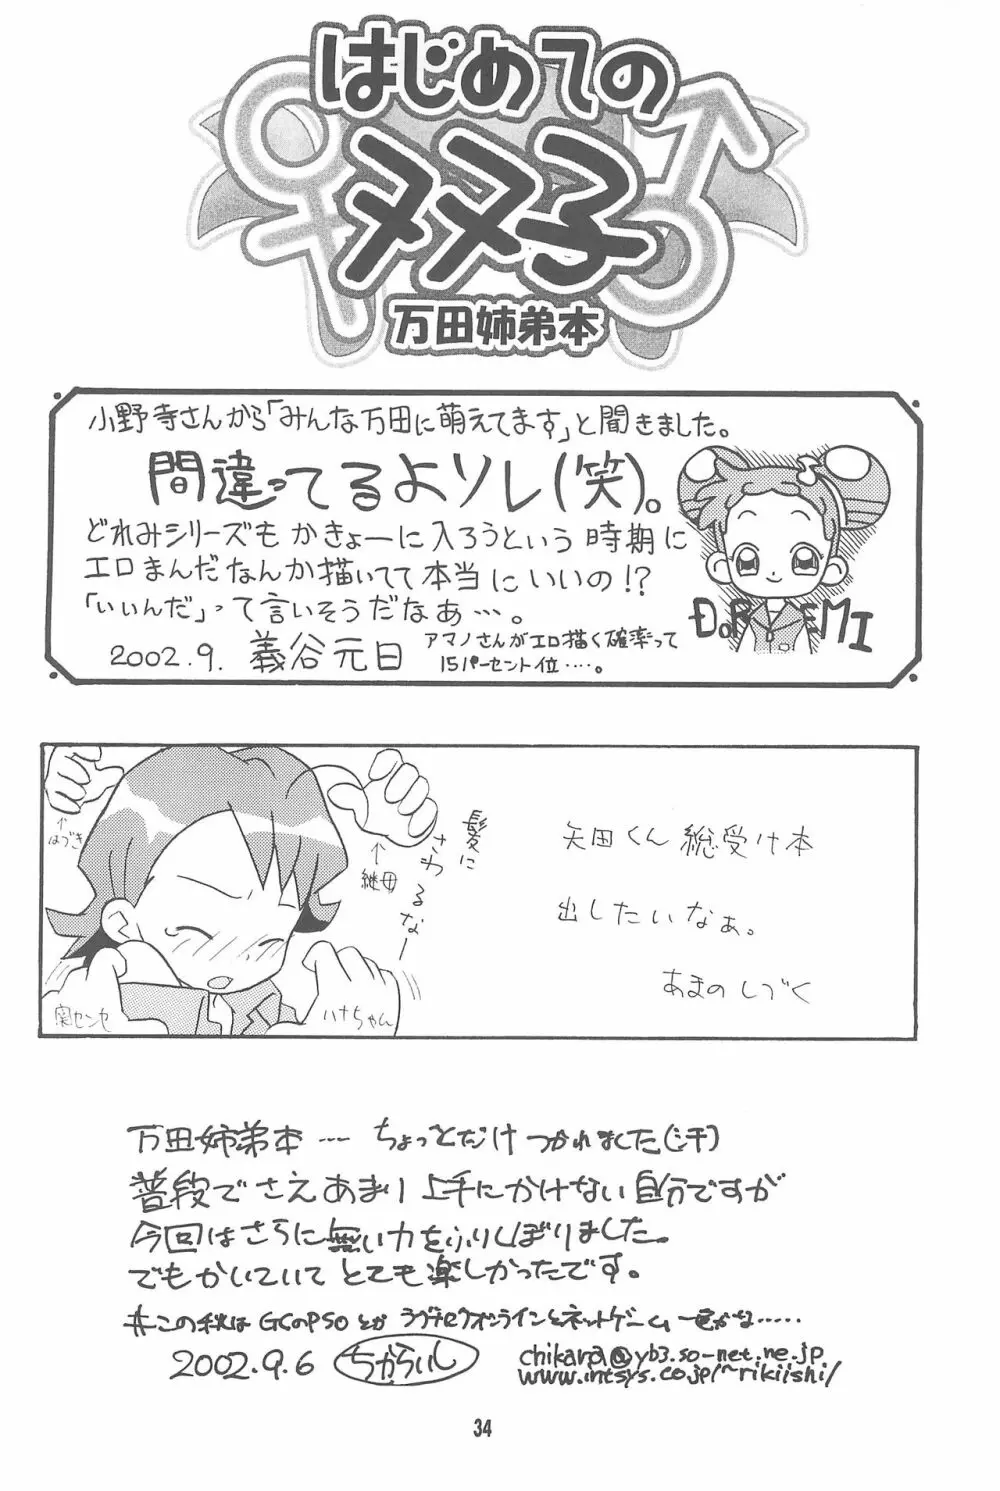 はじめての
双子
万田姉弟本
小野寺さんから「みんな万田に萌えてます」と聞きました。
間違ってるよソレ(笑)。
どれみシリーズもかきょーに入ろうという時期に
エロまんだなんか描いてて本当にいいの!?
「いいんだ」って言いそうだなぁ…。
2002.9. 義谷元日
アマノさんがエロ描く確率って
15パーセント位……。
DoREMI
髪に
さわるなー
↑
はづき
↑
継母
関センセ
ハナちゃん
矢田くん 総受け本
出したいなぁ。
あまのしづく
万田姉弟本…ちょっとだけつかれました(;汗)
普段でさえあまり上手にかけない自分ですが
今回はさらに無い力をふりしぼりました。
でもかいていてとても楽しかったです。
#この秋はGCのPSOとか ラグナロクオンラインとネットゲーム一色かな……
2002.9.6 ちからいし
chikara@yb3.so-net.ne.jp
www.intsys.co.jp/~rikiishi/
34